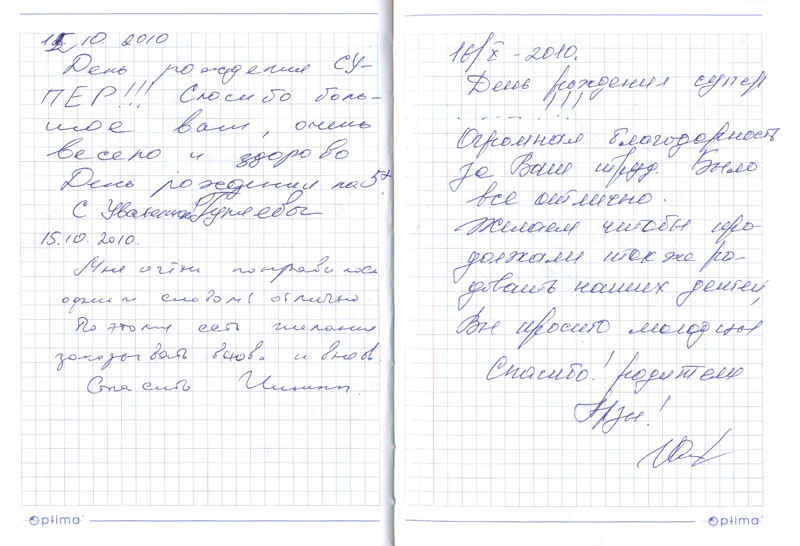 15.10.2010
День рождения СУ-
ПЕР!!! Спасибо боль-
шое вам, очень
весело и здорово
День рождения на 5+
С Уважением
15.10.2010.
Мне очень понравилось
одним словом отлично.
Поэтому есть желание
заказывать вновь и вновь.
16/X - 2010.
День рождения супер
. . . . . !!!
Огромная благодарность
за Ваш труд. Было
все отлично.
Желаем чтобы про-
должали так же ра-
довать наших детей,
Вы просто молодцы
Спасибо! родители
Optima
Optima